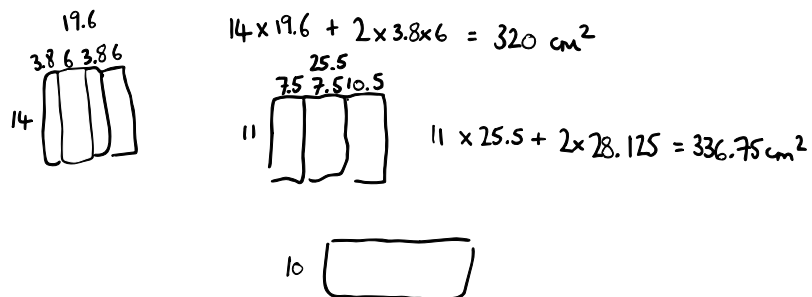 19.6
3.8 6 3.8 6
14
14 x 19.6 + 2 x 3.8 x 6 = 320 cm²
25.5
7.5 7.5 10.5
11
11 x 25.5 + 2x 28.125 = 336.75 cm²
10